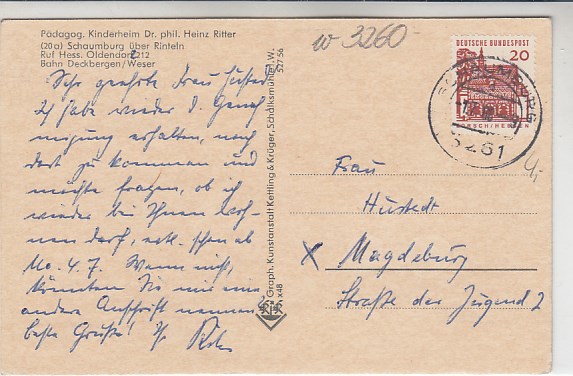 Pädagog. Kinderheim Dr. phil. Heinz Ritter
(20a) Schaumburg über Rinteln
Ruf Hess. Oldendorf 212
Bahn Deckbergen/Weser
Sehr geehrte Frau Hustedt
Ich habe wieder d. Geneh
migung erhalten, nach
dort zu kommen und
möchte fragen, ob ich
wieder bei Ihnen woh-
nen darf, schon ab
Mo. 4.7. Wenn nicht,
könnten Sie mir eine
andere Anschrift nennen
beste Grüße! Ihr
Graph. Kunstanstalt Kettling & Krüger, Schalksmühle i.W.
527 56
x48
w 3260-
DEUTSCHE BUNDESPOST
20
LORSCH/HESSEN
SCHAUMBURG
3261
4,-
Frau
Hustedt
x Magdeburg
Straße der Jugend 2